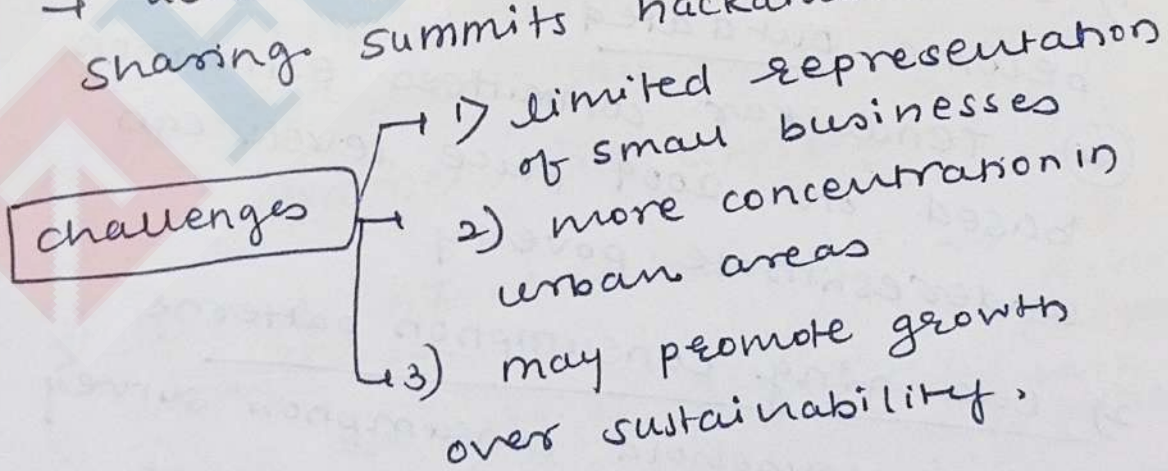 sharing. summits
challenges
1) limited representation
of small businesses
2) more concentration in
urban areas
3) may promote growth
over sustainability.